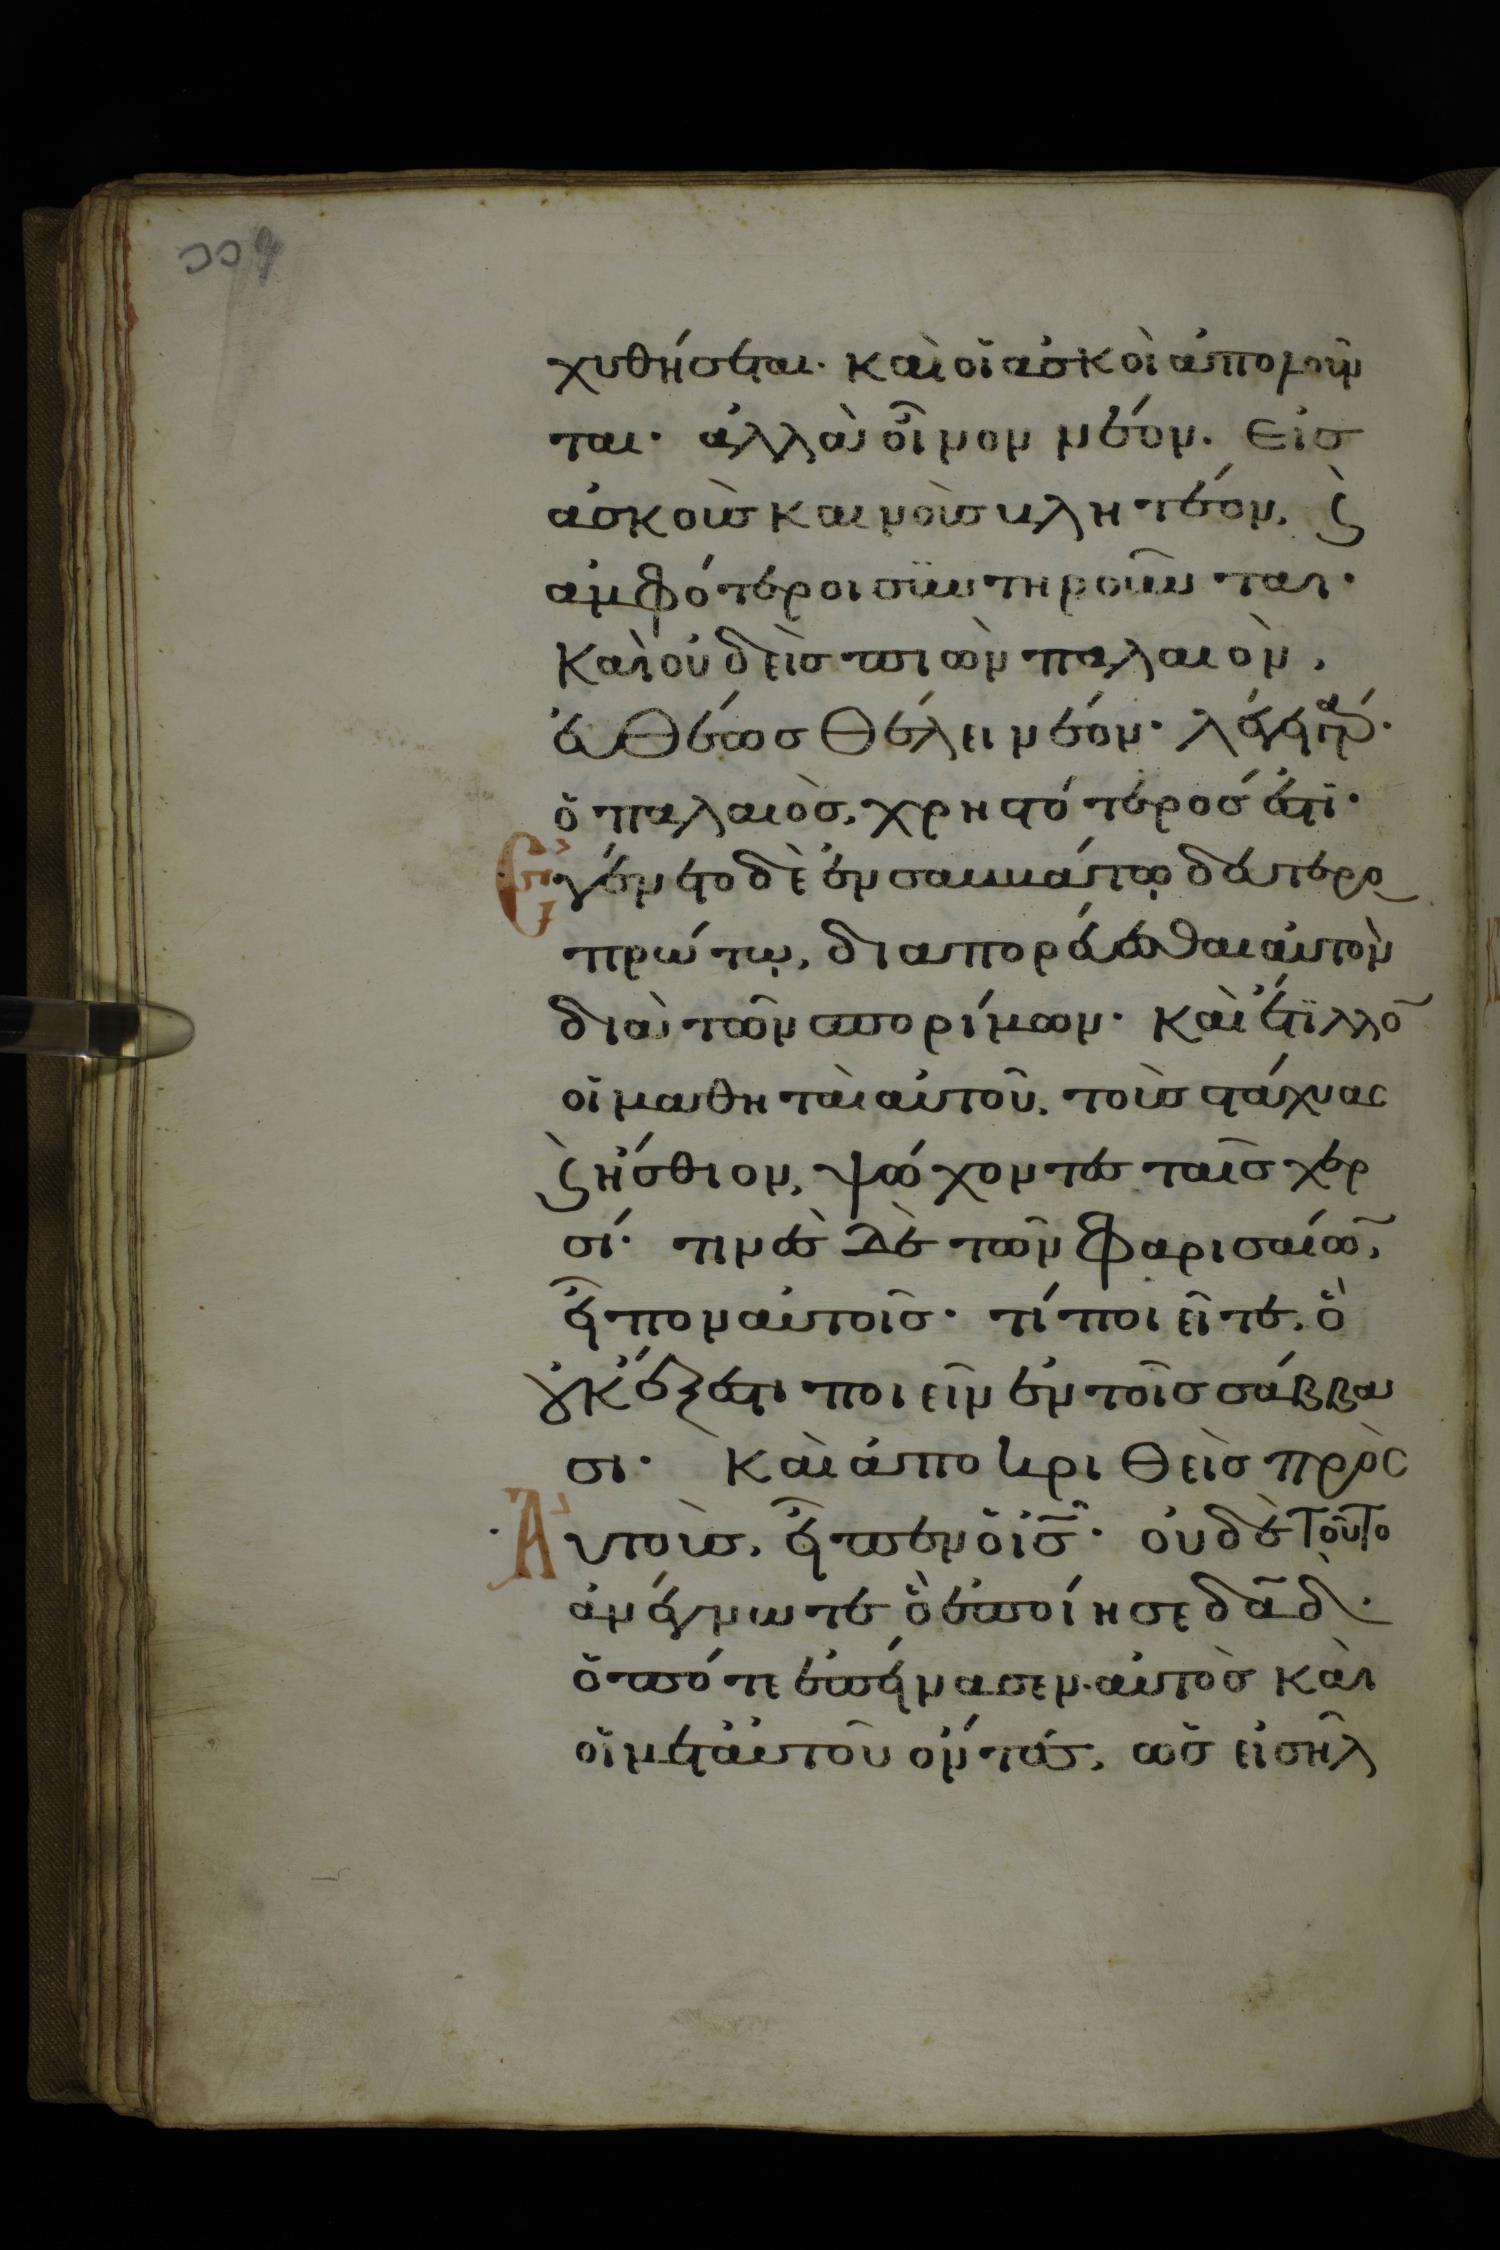 χυθήσεται· καὶ οἱ ἀσκοὶ ἀπολοῦν
ται· ἀλλὰ οἶνον νέον. εἰς
ἀσκοὺς καινοὺς βλητέον, ϗ
ἀμφότεροι συντηροῦνται·
Καὶ οὐδεὶς πιὼν παλαιὸν,
εὐθέως θέλει νέον· λέγει γάρ·
ὁ παλαιὸς, χρηστότερός ἐστϊ·
Ἐγένετο δὲ ἐν σαββάτω δευτερο
πρώτω, διαπορεύεσθαι αὐτὸν
διὰ τῶν σπορίμων· καὶ ἔτϊλλο̄
οἱ μαθηταὶ αὐτοῦ, τοὺς στάχυας
ϗ ἤσθιον, ψώχοντες ταῖς χερ
σί· τινὲς δὲ τῶν φαρισαίω̄,
εἶπον αὐτοῖς· τί ποιεῖτε, ὃ
οὐκ ἔξεστι ποιεῖν ἐν τοῖς σάββα
σι· Καὶ ἀποκριθεὶς πρὸς
Αὐτοὺς, εἶπεν ὁ ις̄· οὐδὲ τοῦτο
ἀνέγνωτε ὃ ἐποίησε δᾱδ·
ὁπότε ἐπείνασεν· αὐτὸς καὶ
οἱ μετ' αὐτοῦ ὄντες, ὡς εἰσῆλ